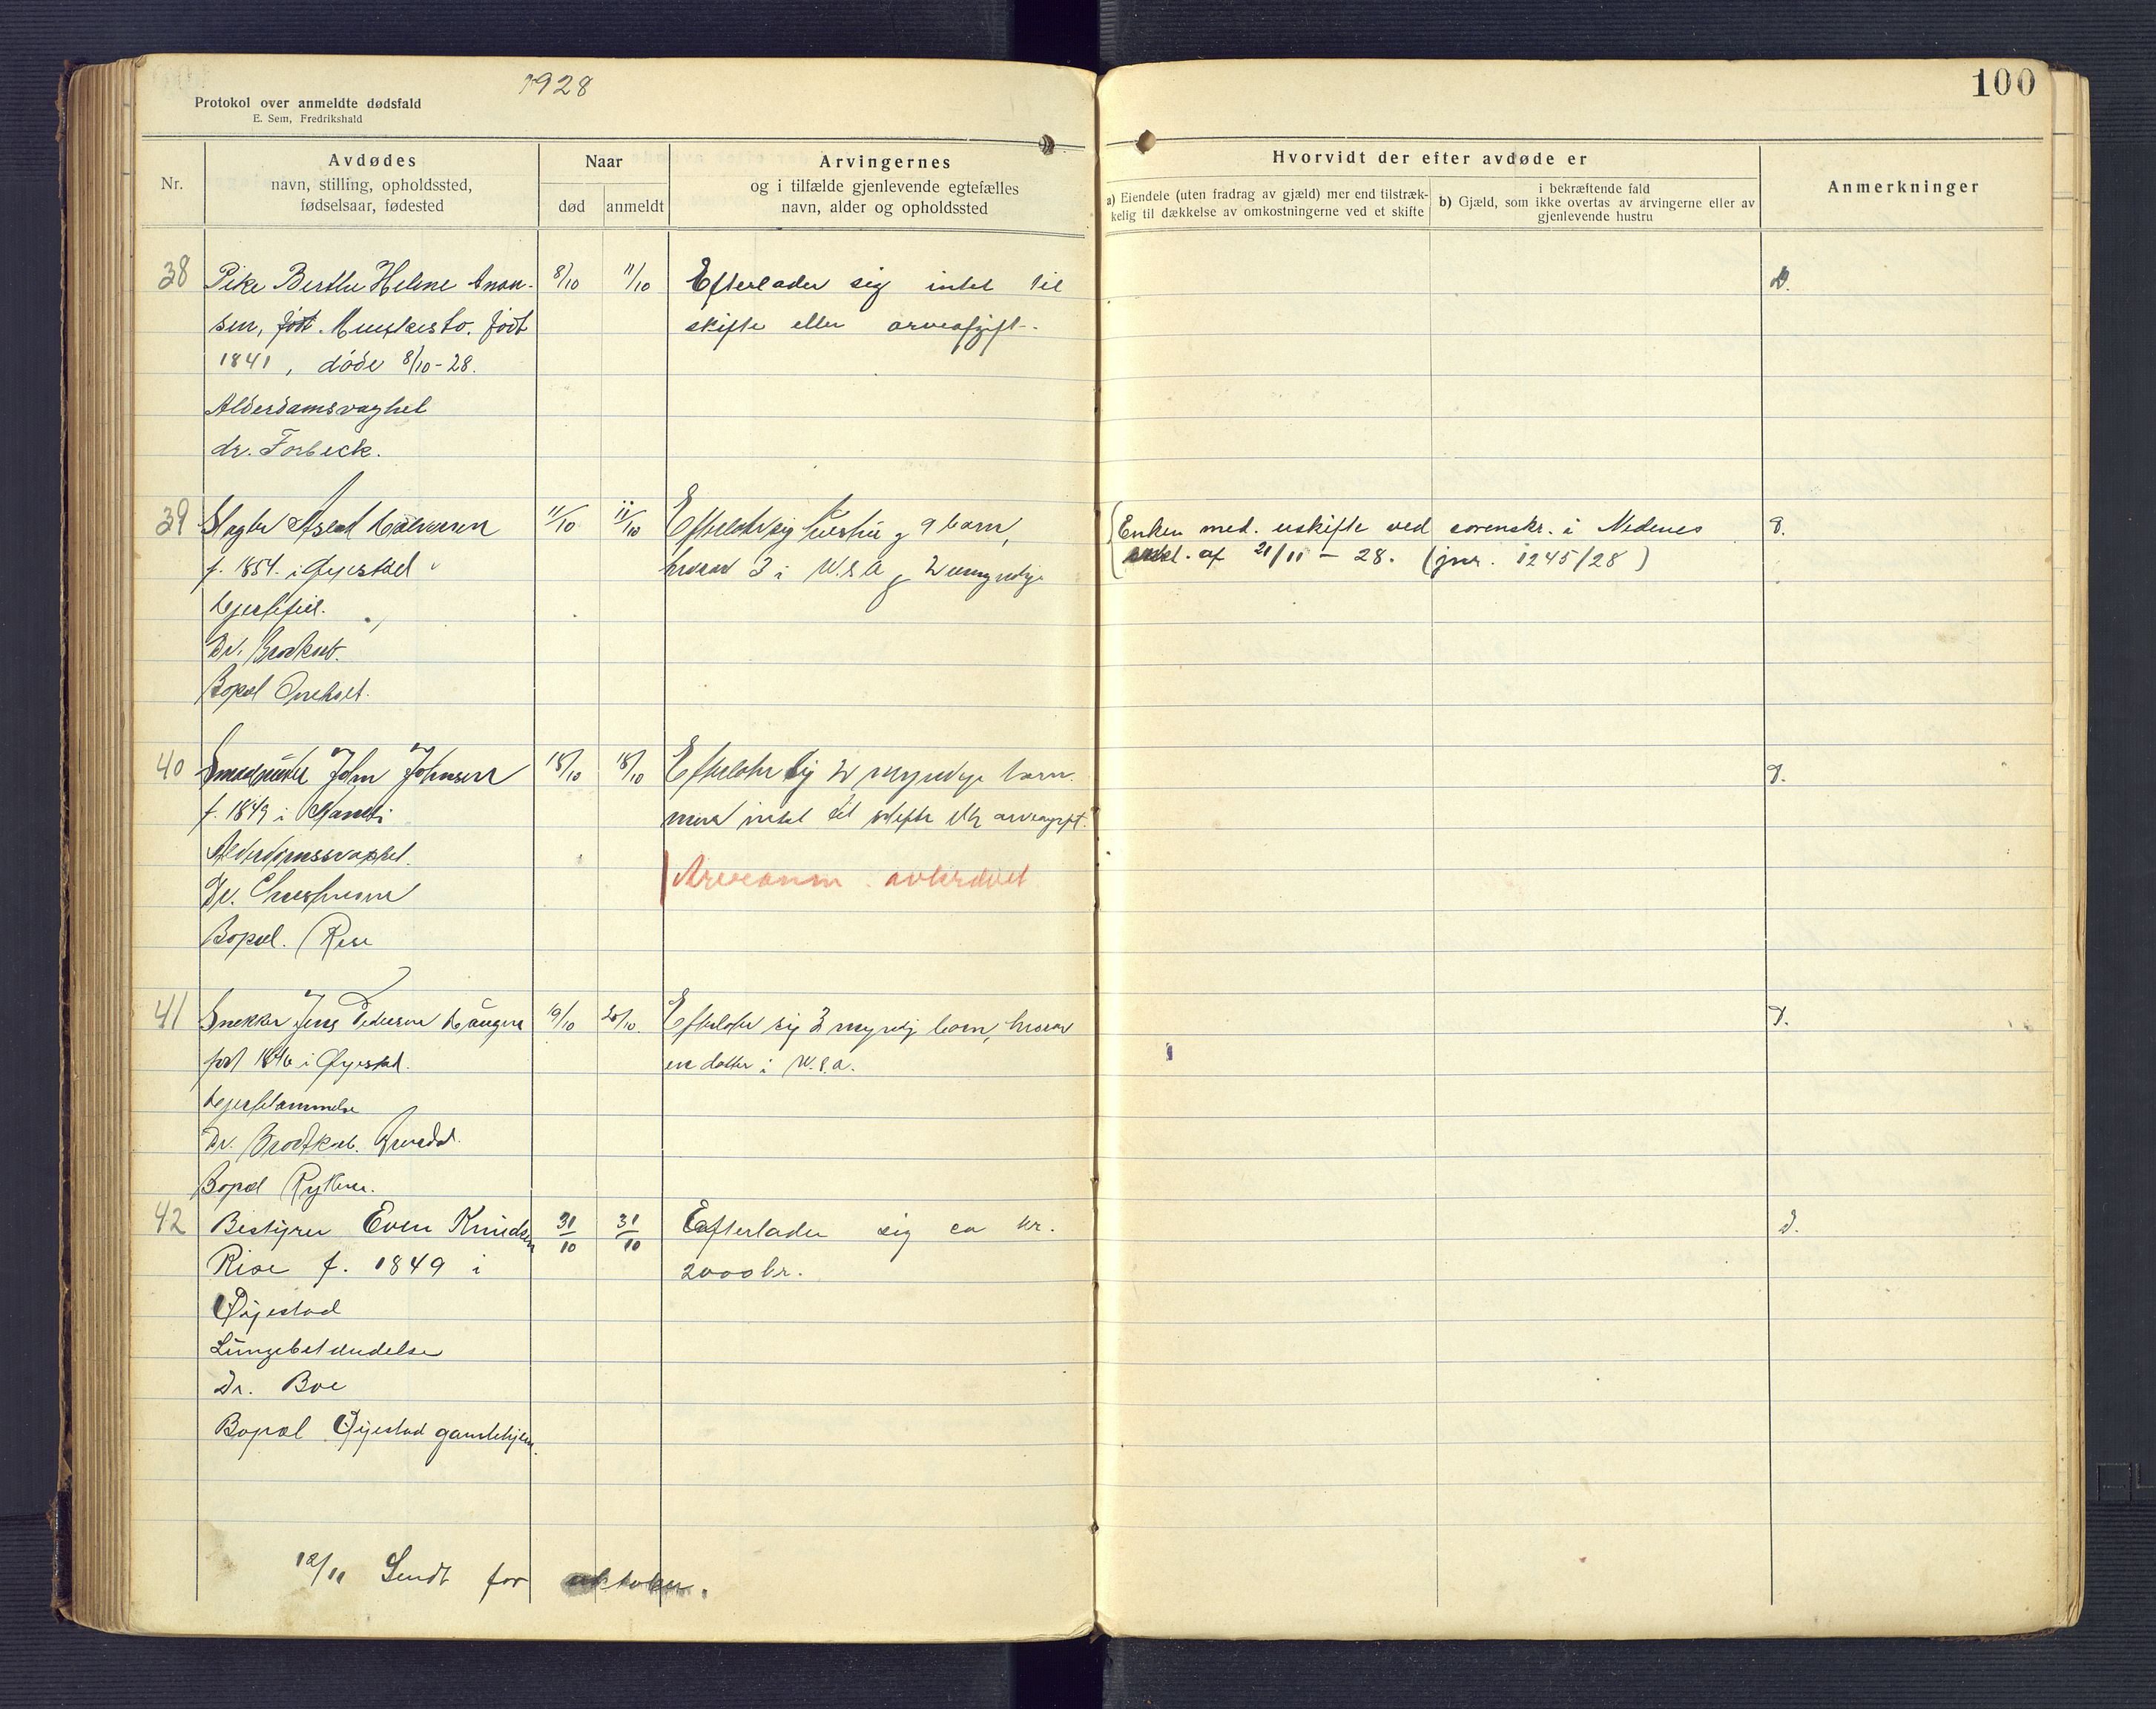 1928
100
Protokol over anmeldte dødsfald
E. Sem, Fredrikshald
Nr.
Avdødes
navn, stilling, opholdssted,
fødselsaar, fødested
Naar
død
anmeldt
Arvingernes
og i tilfælde gjenlevende egtefælles
navn, alder og opholdssted
Hvorvidt der efter avdøde er
a) Eiendele (uten fradrag av gjæld) mer end tilstræk-
kelig til dækkelse av omkostningerne ved et skifte
i bekræftende fald
b) Gjæld, som ikke overtas av arvingerne eller av
gjenlevende hustru
Anmerkninger
38 Pike Berthe Helene Anon- 8/10 11/10 Efterlader sig intet til
sen, født 
skifte eller arveafgift.
1841, døde 8/10-28.
Alderdomsvaghet
dr. Forbeck.
39 Slagter Aslak Halvorsen 11/10 11/10 Efterlater sig hustru og 9 barn,
Enken med. uskifte ved sorenskr. i Nedenes
f. 1854 i Øyestad
hvorav 3 i U.S.A og 2 umyndige
af 21/11 - 28. (jnr. 1245/28)
Hjertefeil.
Dr. Brodkorb.
Bopæl
40 John Johnsen 18/10 18/10 Efterlater sig 2 myndige barn
f. 1849 i
men intet til skifte eller arveavgift.
Alderdomssvakhet.
Arveanm. avkrævet
Dr.
Bopæl. Rise
41 Snekker Jens Pedersen 19/10 20/10 Efterlater sig 3 myndig barn, hvorav
født 1846 i Øyestad.
en datter i U.S.A.
Hjertelammelse
Dr. Brodtkorb.
Bopæl Rykene.
42 Bestyrer Even Knudsen 31/10 31/10 Efterlader sig ca kr.
Rise f. 1849 i
2000 kr.
Øijestad
Lungebetændelse
Dr. Boe
Bopæl Øijestad gamlehjem.
12/11 Sendt for oktober.